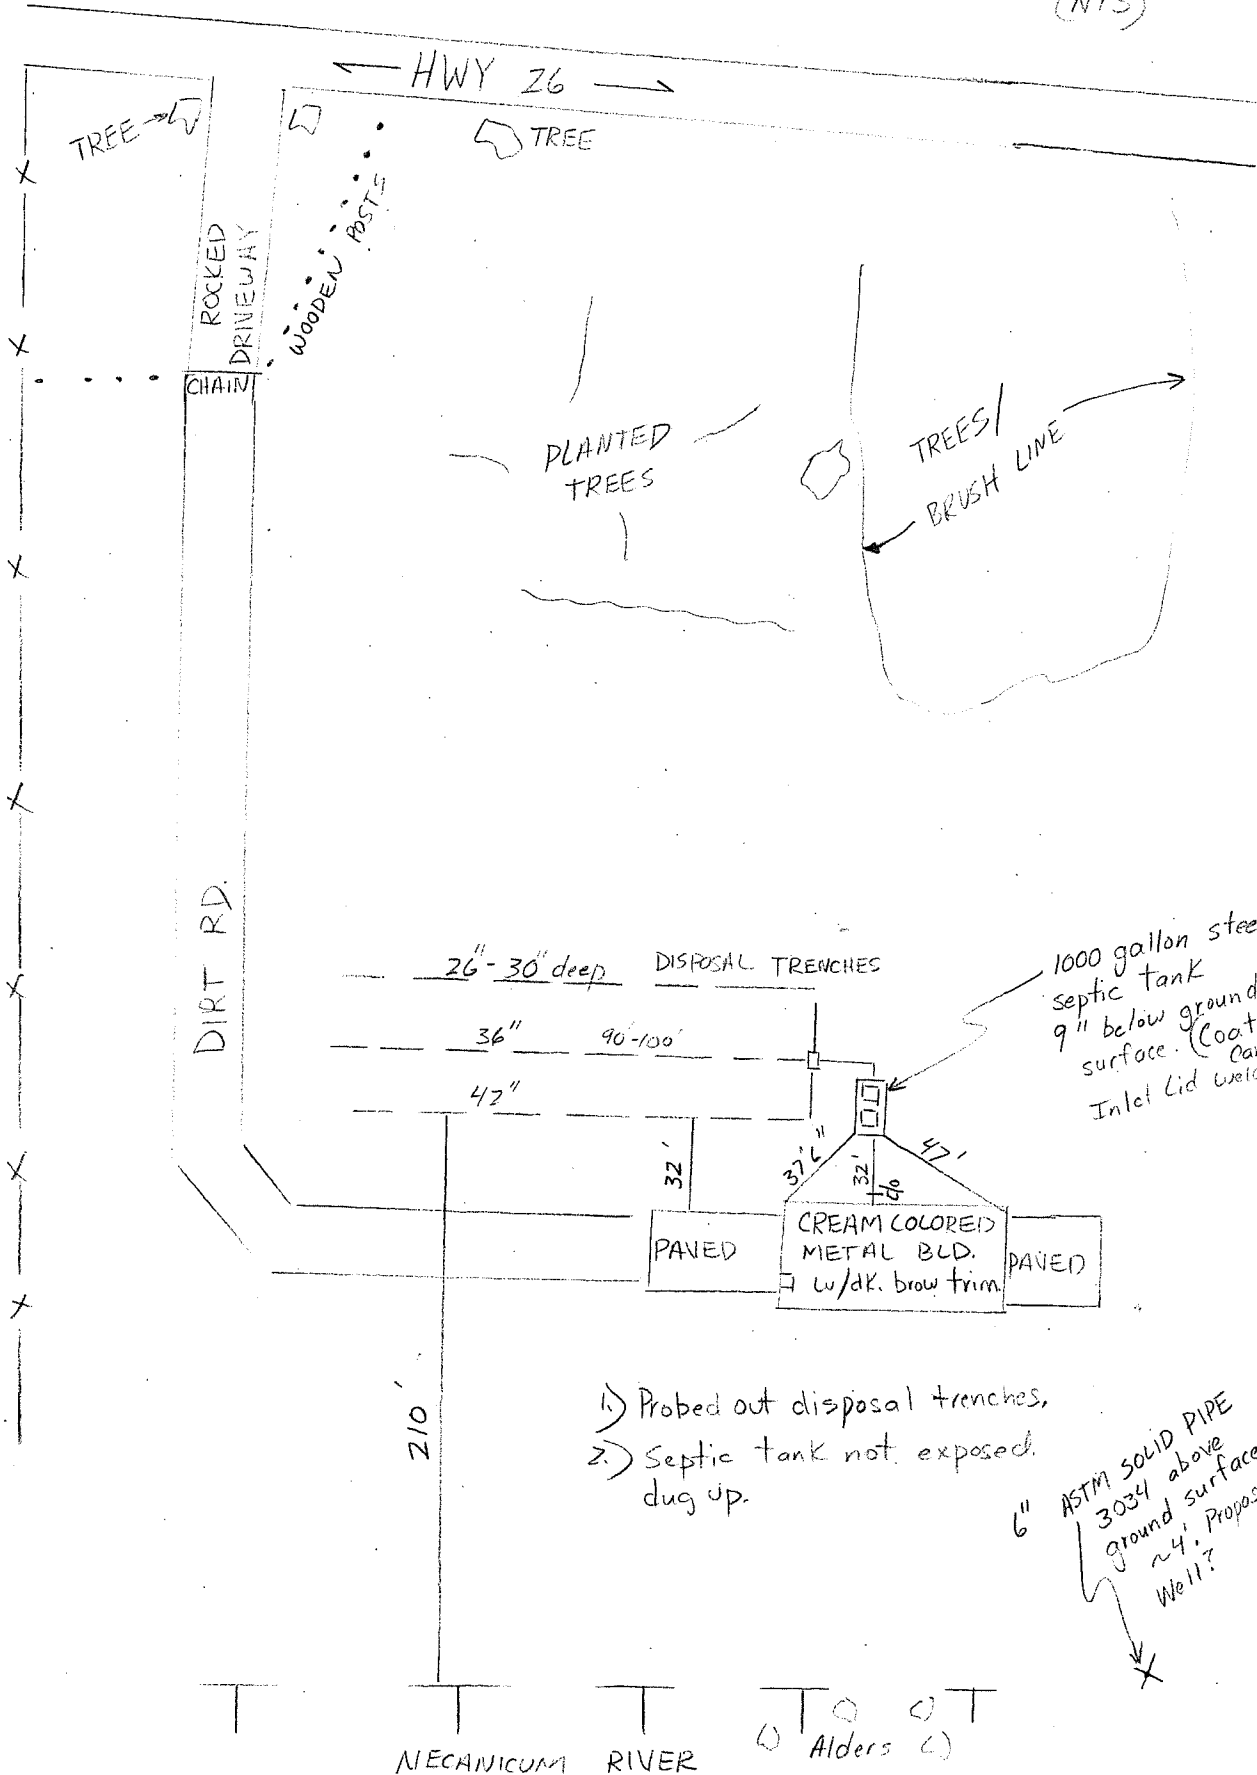 (NTS)
HWY 26
TREE
TREE
ROCKED
DRIVEWAY
WOODEN POSTS
CHAIN
PLANTED
TREES
TREES/
BRUSH LINE
DIRT RD.
26"-30" deep DISPOSAL TRENCHES
36" 90'-100'
42"
1000 gallon stee
septic tank
9" below ground
surface. (Coat
Inlet Lid
32'
37'6"
32'
c/o
47'
PAVED
CREAM COLORED
METAL BLD.
w/dk. brow trim
PAVED
210'
1.) Probed out disposal trenches.
2.) Septic tank not exposed.
dug up.
6" ASTM SOLID PIPE
3034 above
ground surface
~4'. Propos
Well?
NECANICUM RIVER
Alders